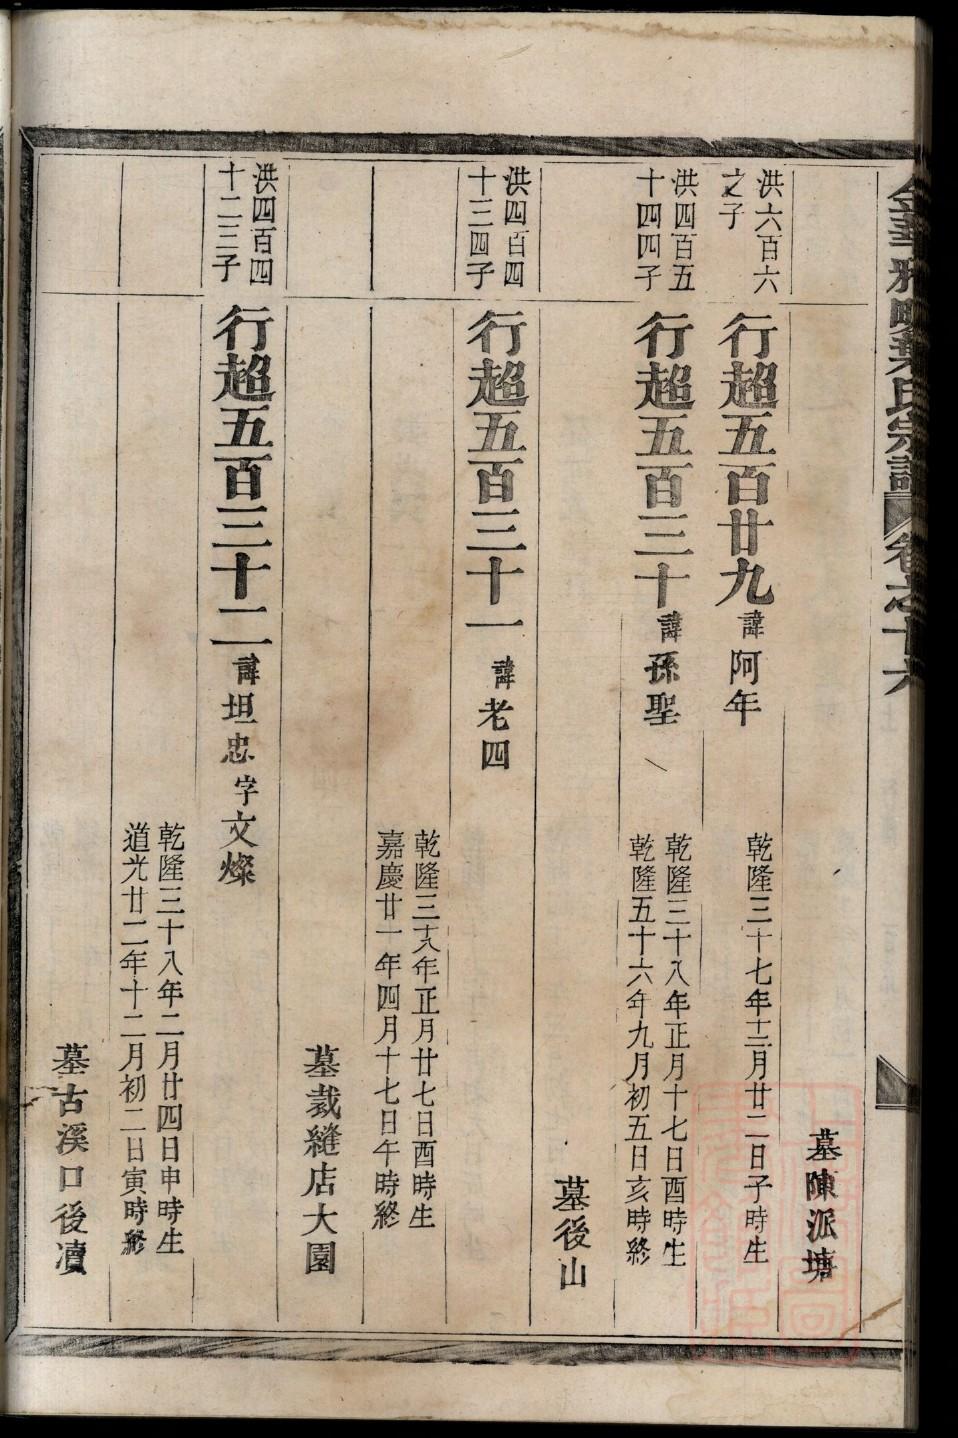 金華雅畈葉氏宗譜 卷之十六
墓陳派塘
洪六百六
之子
行超五百廿九 諱阿年
乾隆三十七年十二月廿二日子時生
洪四百五
十四四子
行超五百三十 諱孫聖
乾隆三十八年正月十七日酉時生
乾隆五十六年九月初五日亥時終
墓後山
洪四百四
十三四子
行超五百三十一 諱老四
乾隆三十八年正月廿七日酉時生
嘉慶廿一年四月十七日午時終
墓裁縫店大園
洪四百四
十二三子
行超五百三十二 諱坦忠字文燦
乾隆三十八年二月廿四日申時生
道光廿二年十二月初二日寅時終
墓古溪口後瀆